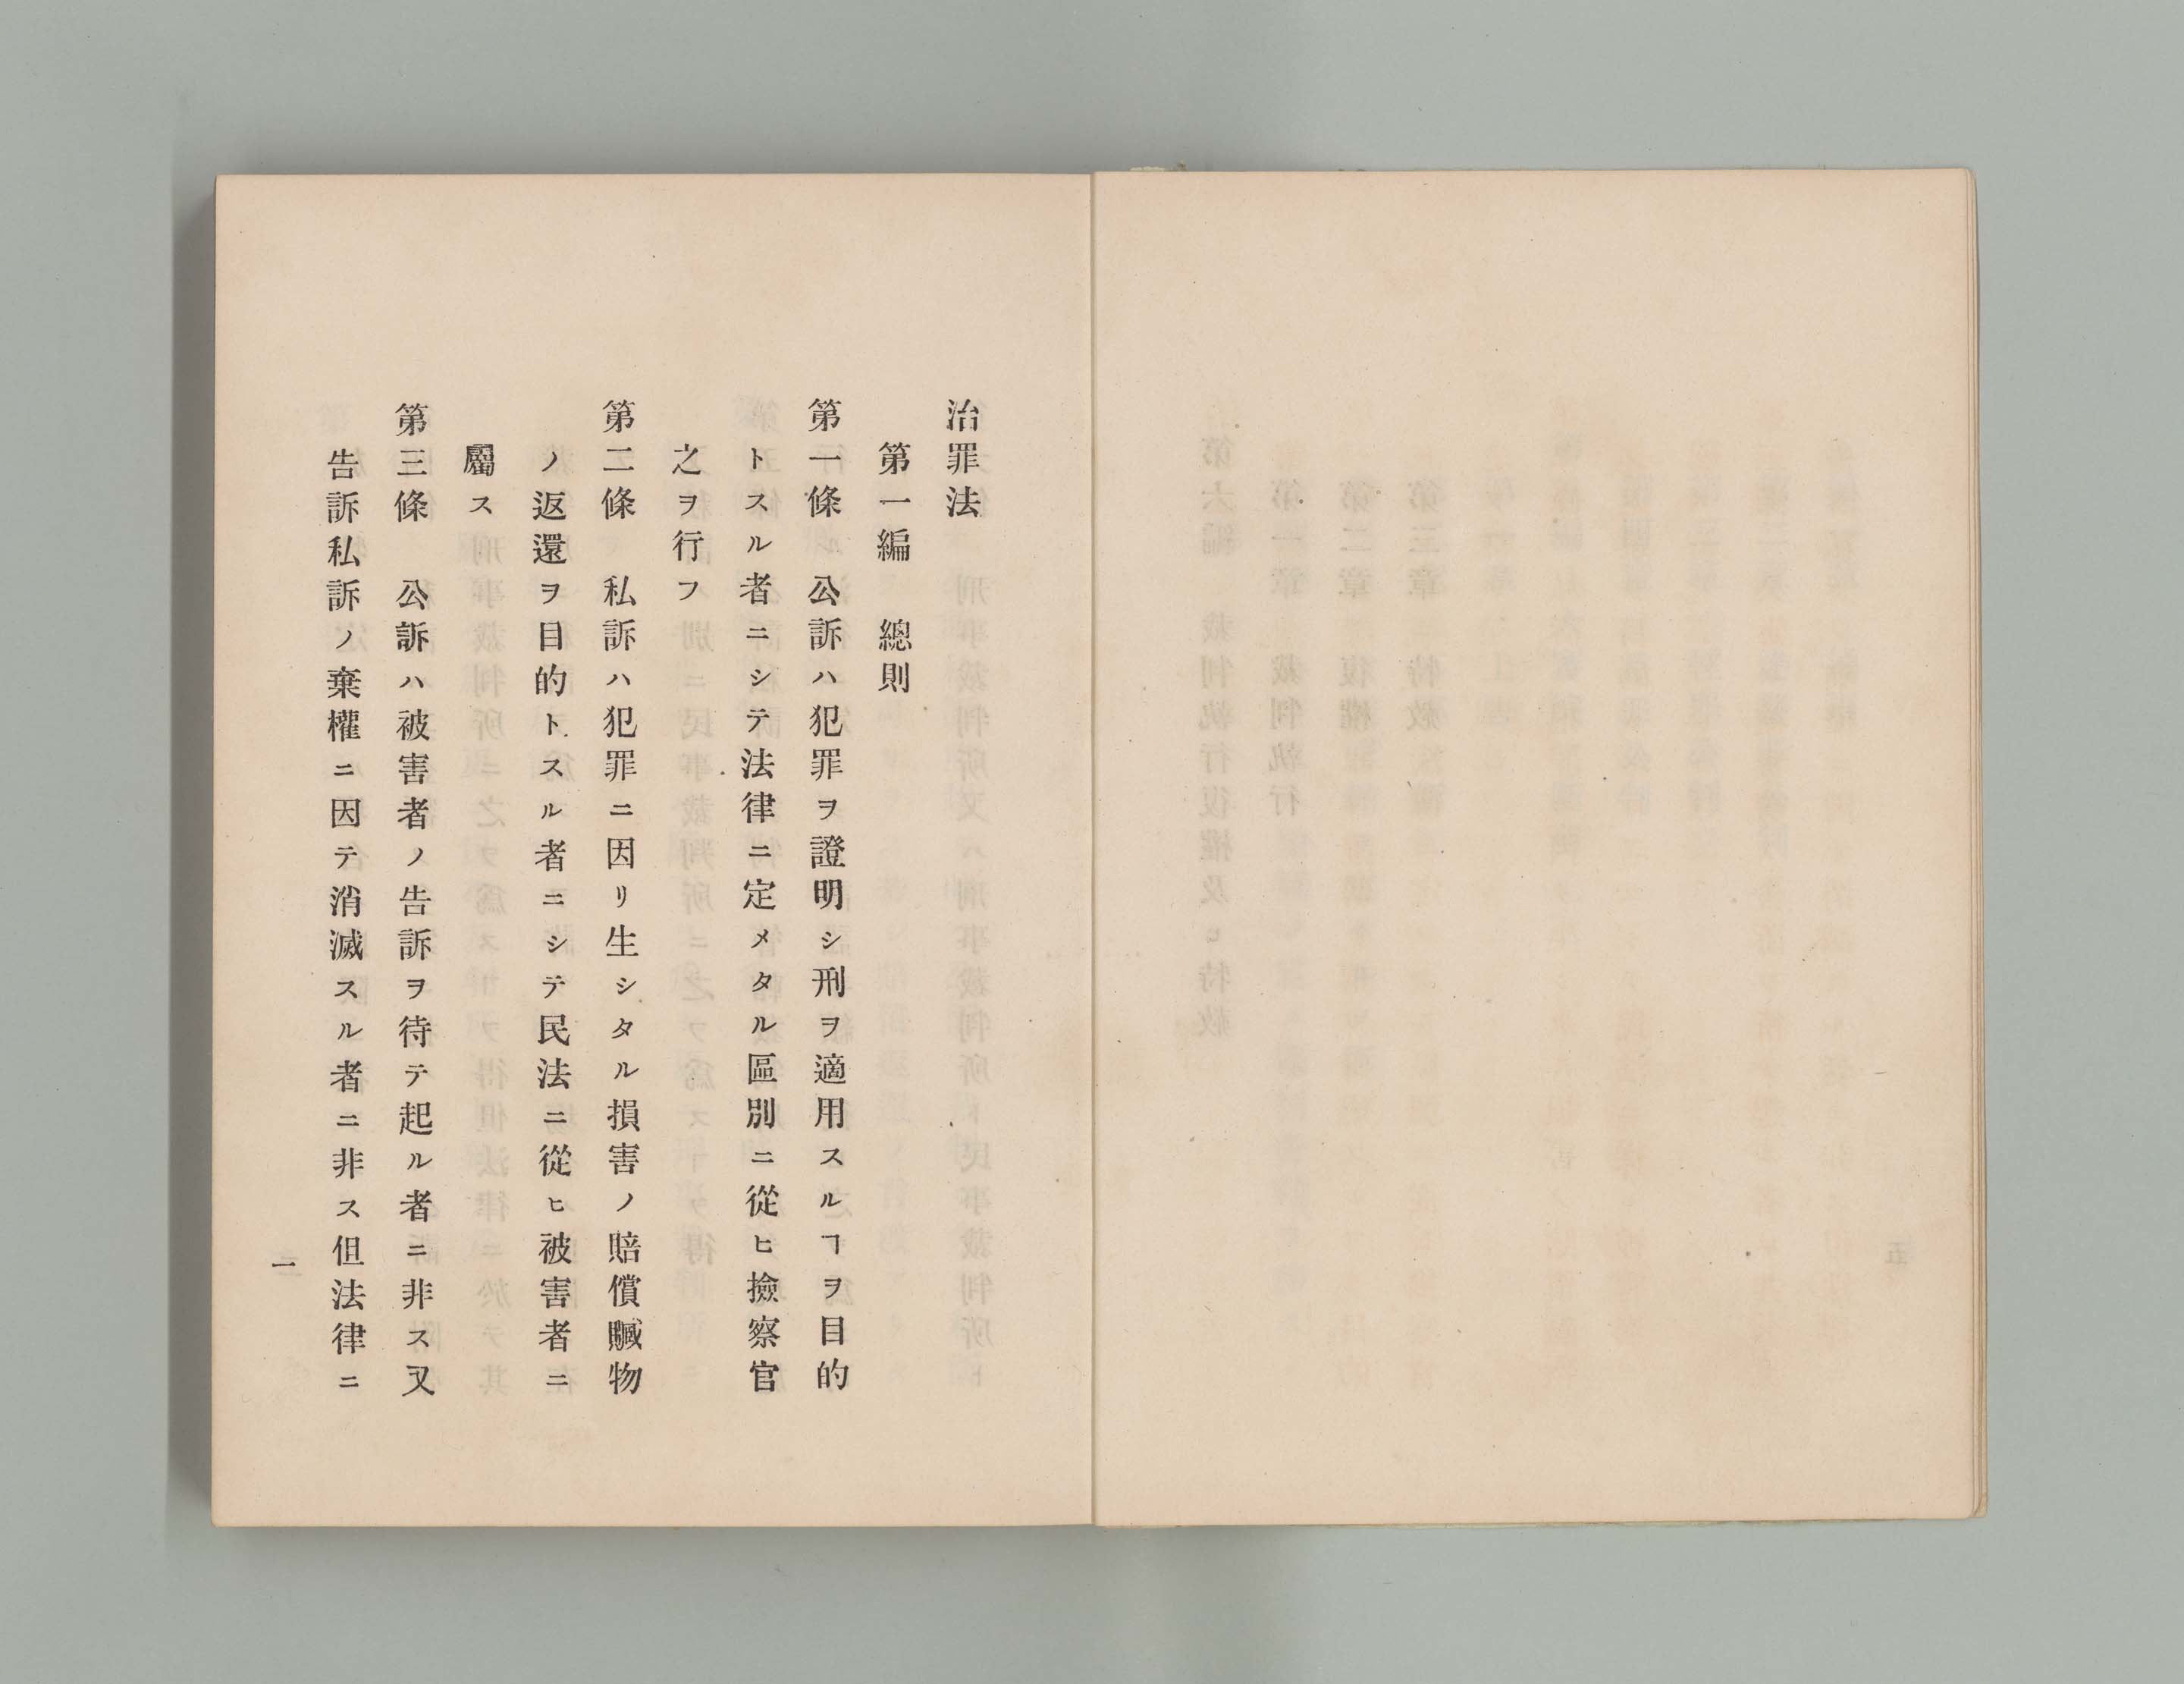 治罪法
第一編　總則
第一條　公訴ハ犯罪ヲ證明シ刑ヲ適用スルヿヲ目的
トスル者ニシテ法律ニ定メタル區別ニ從ヒ撿察官
之ヲ行フ
第二條　私訴ハ犯罪ニ因リ生シタル損害ノ賠償贓物
ノ返還ヲ目的トスル者ニシテ民法ニ從ヒ被害者ニ
屬ス
第三條　公訴ハ被害者ノ告訴ヲ待テ起ル者ニ非ス又
告訴私訴ノ棄權ニ因テ消滅スル者ニ非ス但法律ニ
一